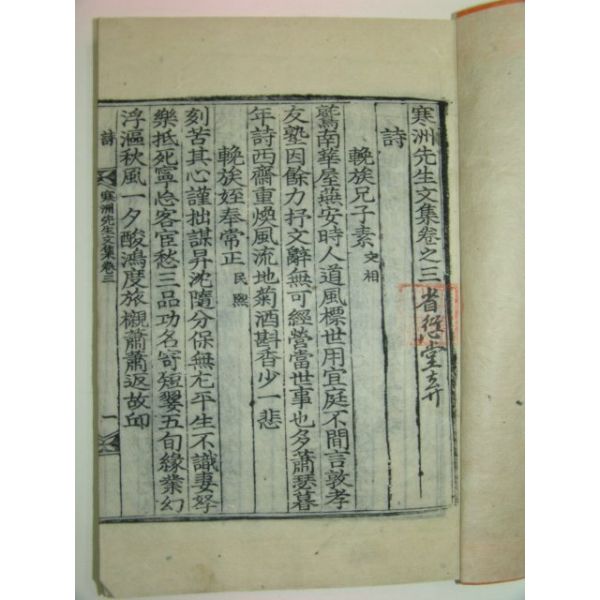 寒洲先生文集卷之三
省愆堂弆
詩
輓族兄子素 史相
鵞南華屋燕安時人道風標世用宜庭不間言敦孝
友塾因餘力抒文辭無可經營當世事也多蕭瑟暮
年詩西齋重煥風流地菊酒斟香少一悲
輓族姪奉常正 民熙
刻苦其心謹拙謀昇沈隨分保無尤平生不識妻孥
樂抵死寧忘客宦愁三品功名寄短翣五旬緣業幻
浮漚秋風一夕酸鴻度旅櫬蕭蕭返故邱
詩
寒洲先生文集卷三
一